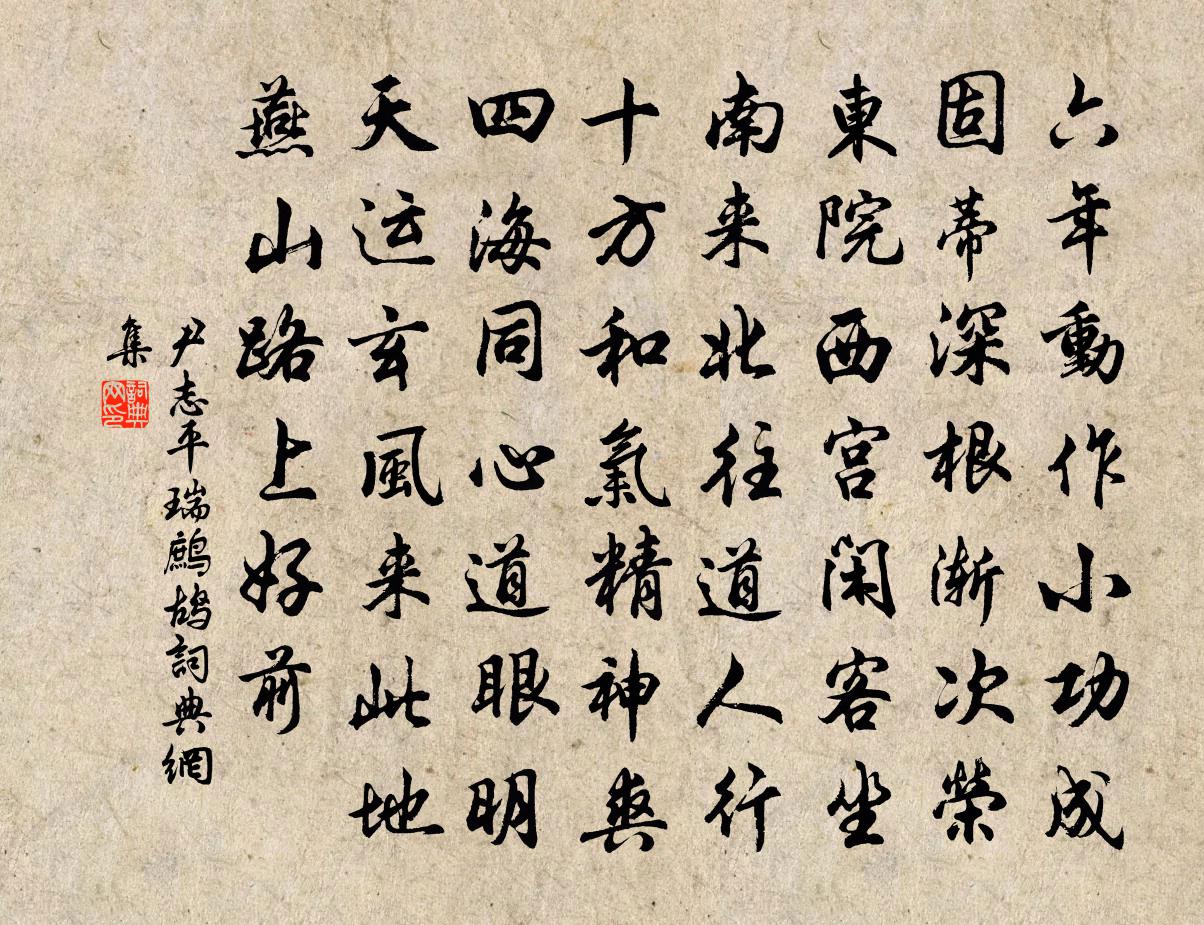 六年動作小功成
固蒂深根漸次榮
東院西宫闲客坐
南来北往道人行
十方和氣精神爽
四海同心道眼明
天运玄風来此地
燕山路上好前
尹志平瑞鷓鴣詞典網
集
詞典
网印